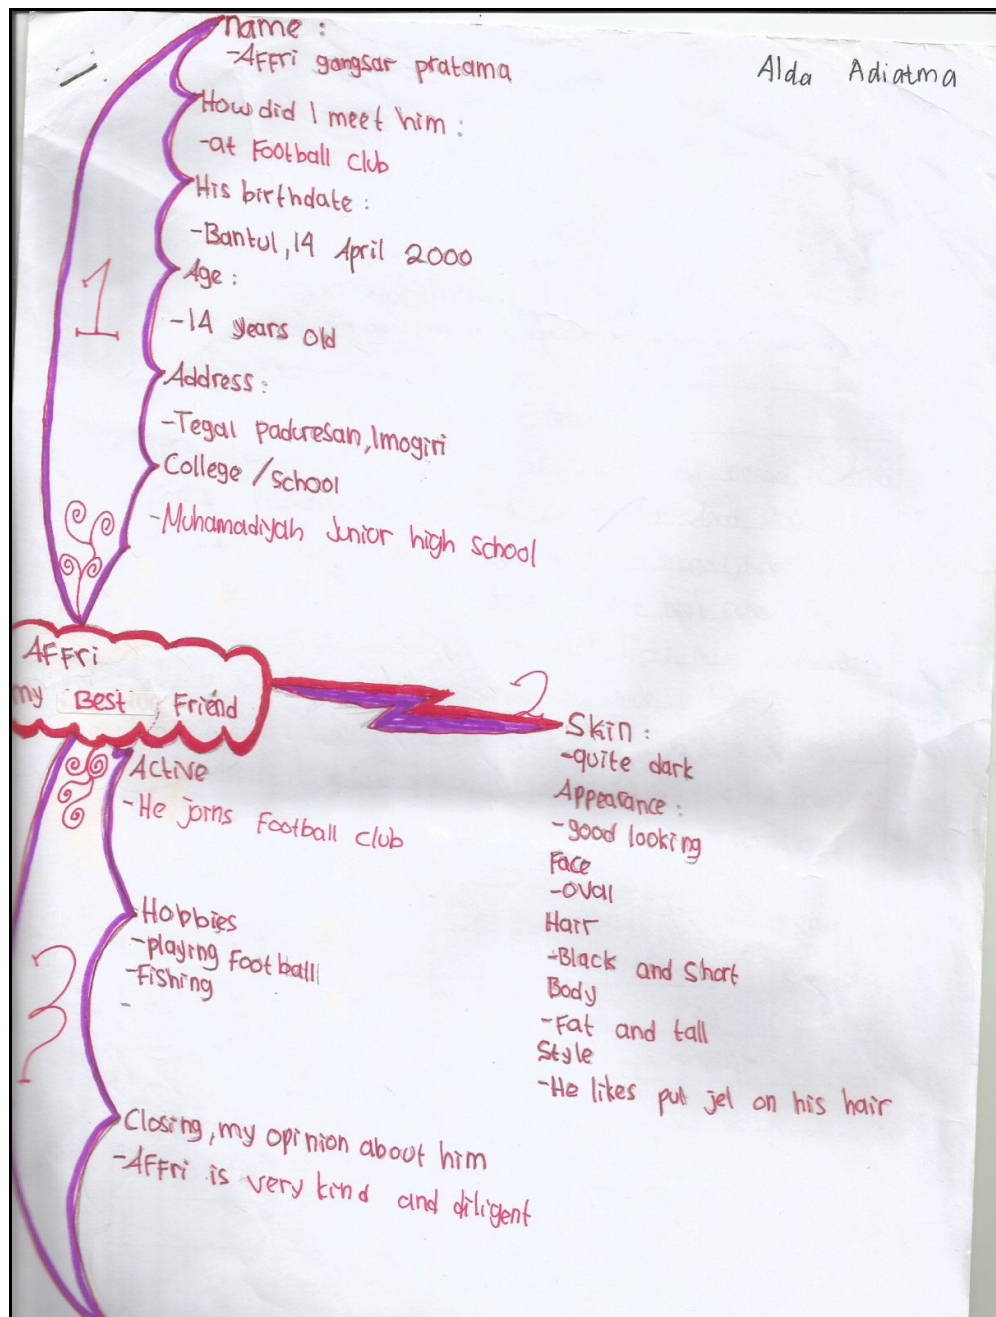 name :
-Affri gangsar pratama
Alda Adiatma
How did I meet him :
-at Football club
His birthdate :
-Bantul, 14 April 2000
Age :
-14 years old
1
Address :
-Tegal paduresan, Imogiri
College / School
-Muhamadiyah Junior high school
Affri
my Best Friend
2
Skin :
-quite dark
Appearance :
-good looking
Face
-oval
Hair
-Black and Short
Body
-Fat and tall
Style
-He likes put jel on his hair
Active
-He joins Football club
Hobbies
-playing Football
-Fishing
3
Closing, my opinion about him
-Affri is very kind and diligent